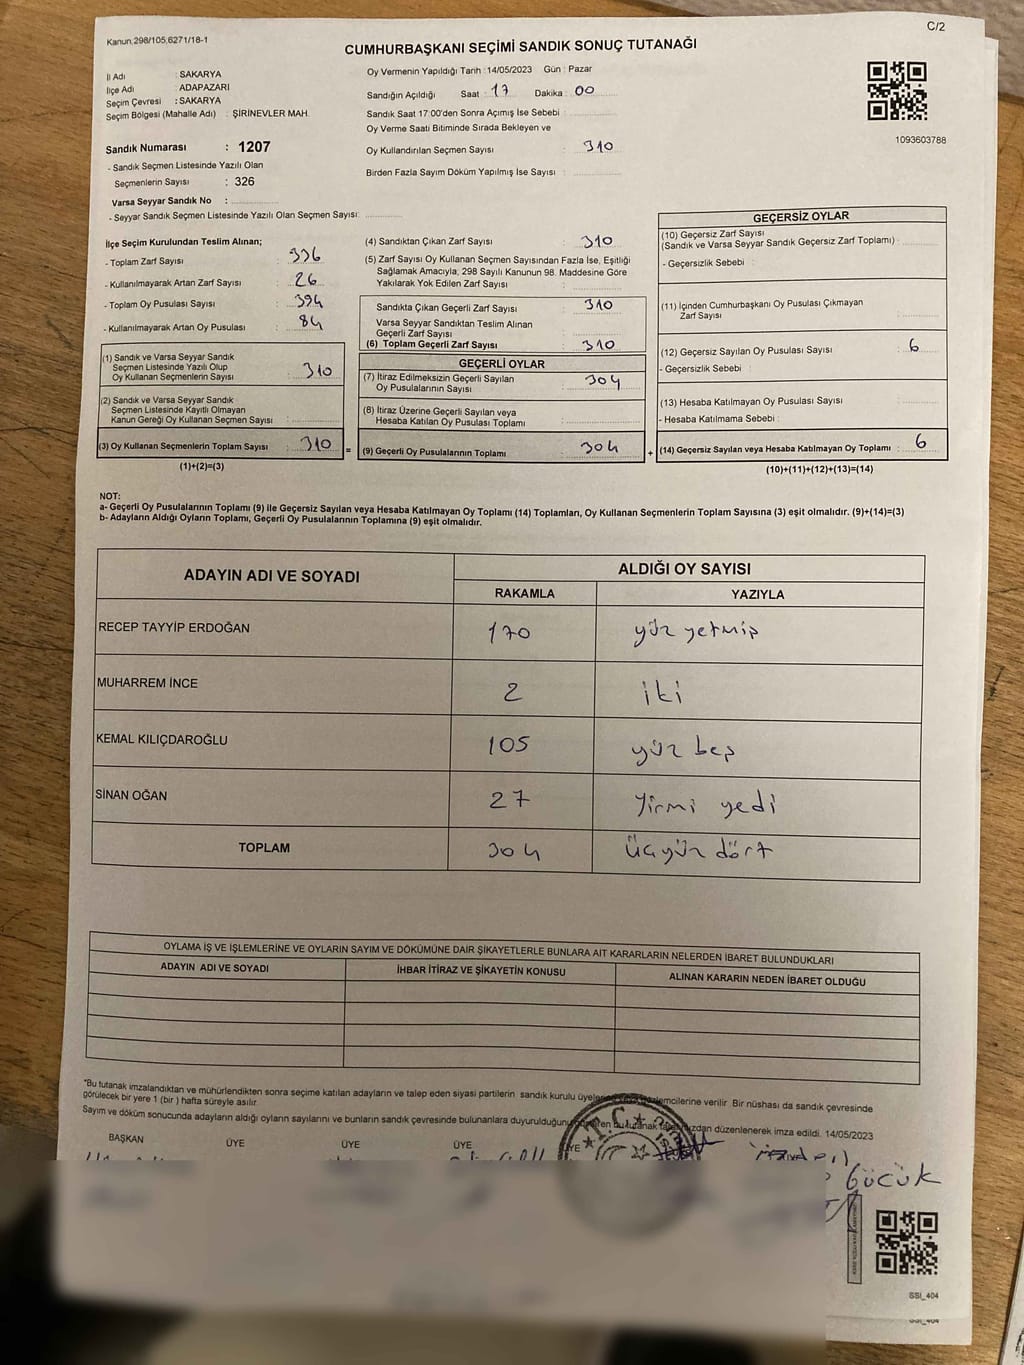 Kanun;298/105;6271/18-1
C/2
CUMHURBAŞKANI SEÇİMİ SANDIK SONUÇ TUTANAĞI
İl Adı : SAKARYA
İlçe Adı : ADAPAZARI
Seçim Çevresi : SAKARYA
Seçim Bölgesi (Mahalle Adı) : ŞİRİNEVLER MAH.
Sandık Numarası : 1207
- Sandık Seçmen Listesinde Yazılı Olan
Seçmenlerin Sayısı : 326
Varsa Seyyar Sandık No :
- Seyyar Sandık Seçmen Listesinde Yazılı Olan Seçmen Sayısı:
Oy Vermenin Yapıldığı Tarih : 14/05/2023 Gün : Pazar
Sandığın Açıldığı Saat : 17 Dakika : 00
Sandık Saat 17:00'den Sonra Açımış İse Sebebi :
Oy Verme Saati Bitiminde Sırada Bekleyen ve
Oy Kullandırılan Seçmen Sayısı : 310
Birden Fazla Sayım Döküm Yapılmış İse Sayısı :
1093603788
İlçe Seçim Kurulundan Teslim Alınan;
- Toplam Zarf Sayısı : 336
- Kullanılmayarak Artan Zarf Sayısı : 26
- Toplam Oy Pusulası Sayısı : 394
- Kullanılmayarak Artan Oy Pusulası : 84
(1) Sandık ve Varsa Seyyar Sandık
Seçmen Listesinde Yazılı Olup
Oy Kullanan Seçmenlerin Sayısı : 310
(2) Sandık ve Varsa Seyyar Sandık
Seçmen Listesinde Kayıtlı Olmayan
Kanun Gereği Oy Kullanan Seçmen Sayısı :
(3) Oy Kullanan Seçmenlerin Toplam Sayısı : 310
(1)+(2)=(3)
(4) Sandıktan Çıkan Zarf Sayısı : 310
(5) Zarf Sayısı Oy Kullanan Seçmen Sayısından Fazla İse, Eşitliği
Sağlamak Amacıyla; 298 Sayılı Kanunun 98. Maddesine Göre
Yakılarak Yok Edilen Zarf Sayısı :
Sandıkta Çıkan Geçerli Zarf Sayısı : 310
Varsa Seyyar Sandıktan Teslim Alınan
Geçerli Zarf Sayısı :
(6) Toplam Geçerli Zarf Sayısı : 310
GEÇERLİ OYLAR
(7) İtiraz Edilmeksizin Geçerli Sayılan
Oy Pusulalarının Sayısı : 304
(8) İtiraz Üzerine Geçerli Sayılan veya
Hesaba Katılan Oy Pusulası Toplamı :
= (9) Geçerli Oy Pusulalarının Toplamı : 304
GEÇERSİZ OYLAR
(10) Geçersiz Zarf Sayısı
(Sandık ve Varsa Seyyar Sandık Geçersiz Zarf Toplamı) :
- Geçersizlik Sebebi :
(11) İçinden Cumhurbaşkanı Oy Pusulası Çıkmayan
Zarf Sayısı :
(12) Geçersiz Sayılan Oy Pusulası Sayısı : 6
- Geçersizlik Sebebi :
(13) Hesaba Katılmayan Oy Pusulası Sayısı :
- Hesaba Katılmama Sebebi :
+ (14) Geçersiz Sayılan veya Hesaba Katılmayan Oy Toplamı : 6
(10)+(11)+(12)+(13)=(14)
NOT:
a- Geçerli Oy Pusulalarının Toplamı (9) ile Geçersiz Sayılan veya Hesaba Katılmayan Oy Toplamı (14) Toplamları, Oy Kullanan Seçmenlerin Toplam Sayısına (3) eşit olmalıdır. (9)+(14)=(3)
b- Adayların Aldığı Oyların Toplamı, Geçerli Oy Pusulalarının Toplamına (9) eşit olmalıdır.
ADAYIN ADI VE SOYADI ALDIĞI OY SAYISI
RAKAMLA YAZIYLA
RECEP TAYYİP ERDOĞAN 170 yüz yetmiş
MUHARREM İNCE 2 iki
KEMAL KILIÇDAROĞLU 105 yüz beş
SİNAN OĞAN 27 Yirmi yedi
TOPLAM 304 üçyüz dört
OYLAMA İŞ VE İŞLEMLERİNE VE OYLARIN SAYIM VE DÖKÜMÜNE DAİR ŞİKAYETLERLE BUNLARA AİT KARARLARIN NELERDEN İBARET BULUNDUKLARI
ADAYIN ADI VE SOYADI İHBAR İTİRAZ VE ŞİKAYETİN KONUSU ALINAN KARARIN NEDEN İBARET OLDUĞU
*Bu tutanak imzalandıktan ve mühürlendikten sonra seçime katılan adayların ve talep eden siyasi partilerin sandık kurulu verilir. Bir nüshası da sandık çevresinde
görülecek bir yere 1 (bir ) hafta süreyle asılır.
Sayım ve döküm sonucunda adayların aldığı oyların sayılarını ve bunların sandık çevresinde bulunanlara duyurulduğunu düzenlenerek imza edildi. 14/05/2023
BAŞKAN ÜYE ÜYE ÜYE ÜYE
T.C.
GÜCÜK
SSI_404
SSI_404